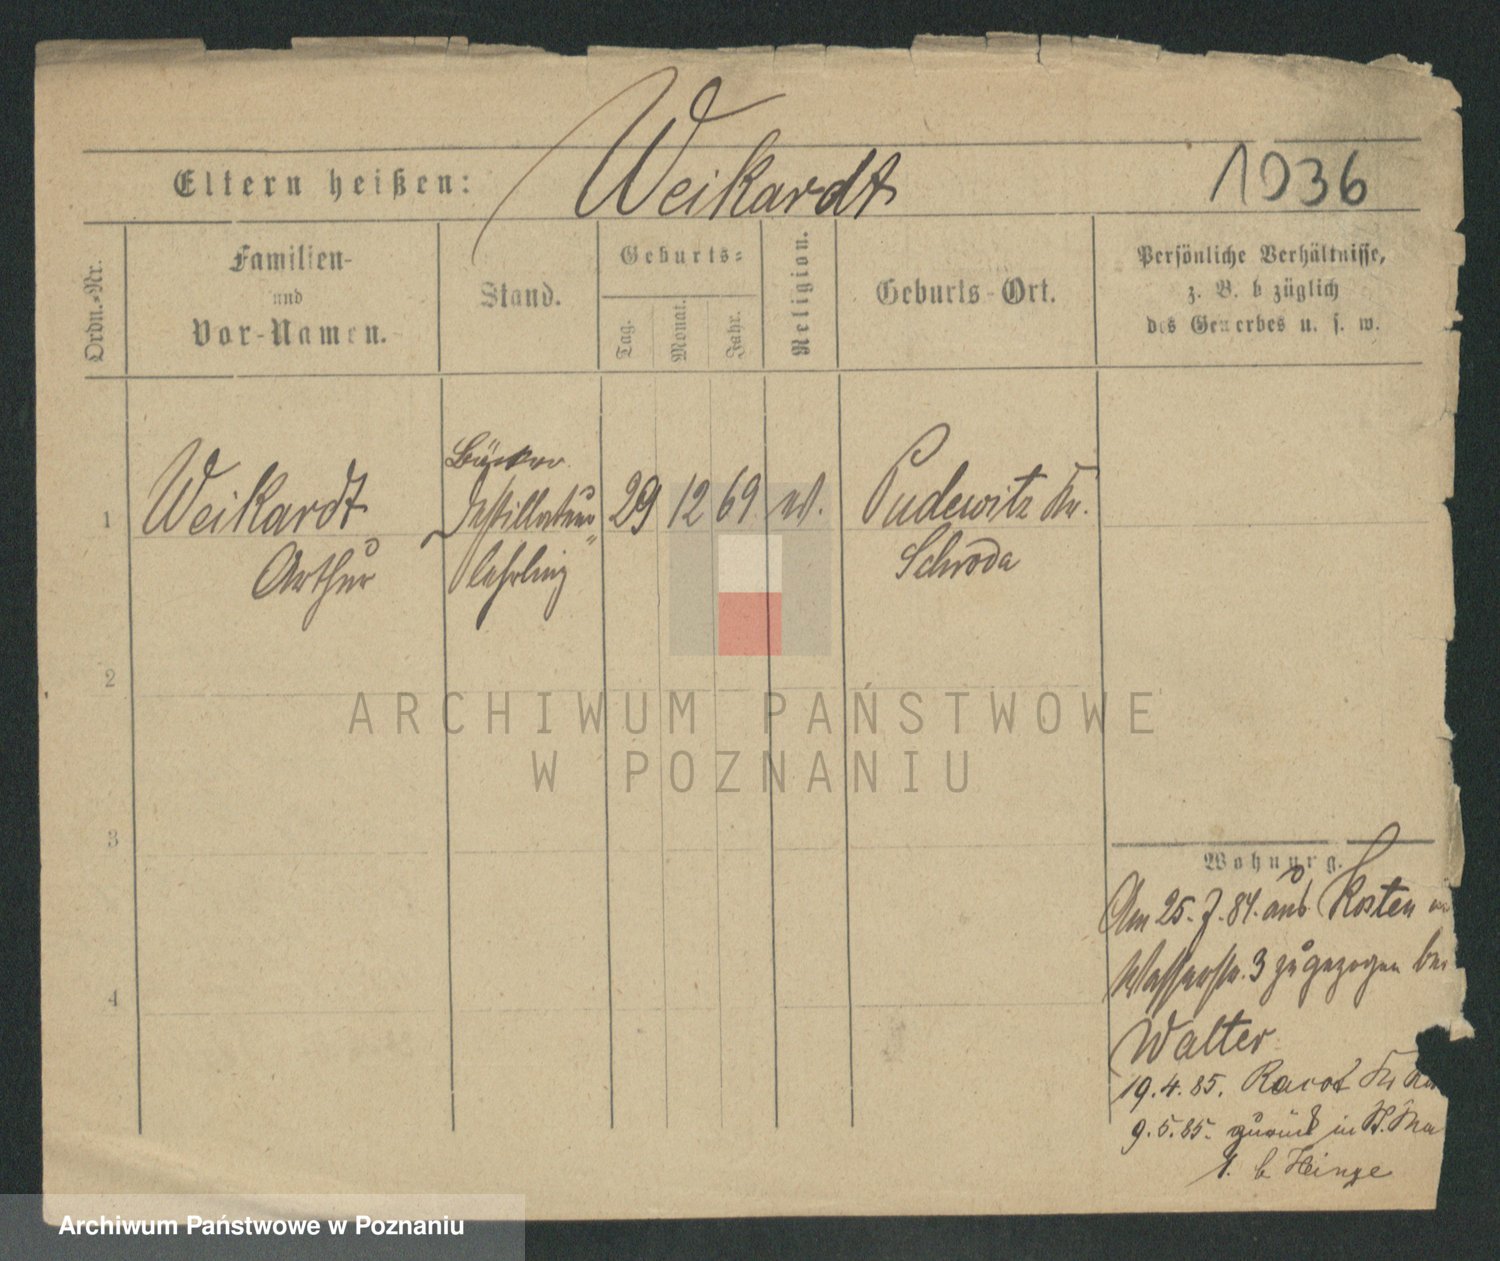 Weikardt
Eltern heißen:
1036
Ordn.-Nr.
Familien-
und
Vor-Namen.
Stand.
Geburts-
Tag.
Monat.
Jahr.
Religion.
Geburts-Ort.
Persönliche Verhältnisse,
z. B. b züglich
des Gewerbes u. s. w.
1
Weikardt
Arthur
Bäcker
Destillateur
lehrling
29
12
69
ev.
Pudewitz Kr.
Schroda
2
ARCHIWUM PAŃSTWOWE
W POZNANIU
3
Wohnung.
Am 25. 7. 84. aus Kosten
Wasserstr. 3 zugezogen bei
4
Walter
19. 4. 85. Racot Kr
9. 5. 85. zurück in
1. b Heinze
Archiwum Państwowe w Poznaniu